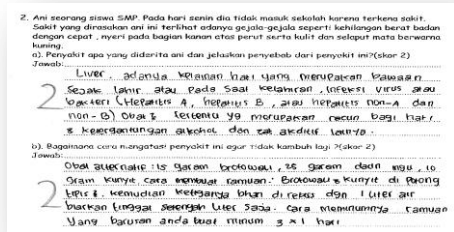 2. Ani seorang siswa SMP. Pada hari senin dia tidak masuk sekolah karena terkena sakit.
Sakit yang dirasakan ani ini terlihat adanya gejala-gejala seperti kehilangan berat badan
dengan cepat, nyeri pada bagian kanan atas perut serta kulit dan selaput mata berwarna
kuning.
a). Penyakit apa yang diderita ani dan jelaskan penyebab dari penyakit ini?(skor 2)
Jawab:
Liver. adanya kelainan hati yang merupakan bawaan
sejak lahir atau pada saat kelahiran, infeksi virus atau
bakteri (Hepatitis A, hepatitis B, atau hepatitis non-A dan
non-B) obat2 tertentu yg merupakan racun bagi hati,
& ketergantungan alkohol dan zat akdiktif lainya.
2
b). Bagaimana cara mengatasi penyakit ini agar tidak kambuh lagi ?(skor 2)
Jawab:
Obat alternatif: 15 garam brotowali, 25 garam daun, 10
Gram kunyit cara membuat ramuan: Brotowali & kunyit di potong
tipis2. kemudian ketiganya bhan di rebus dgn 1 Liter air
biarkan tinggal setengah liter saja. Cara meminumnya ramuan
yang barusan anda buat minum 3 x 1 hari
2